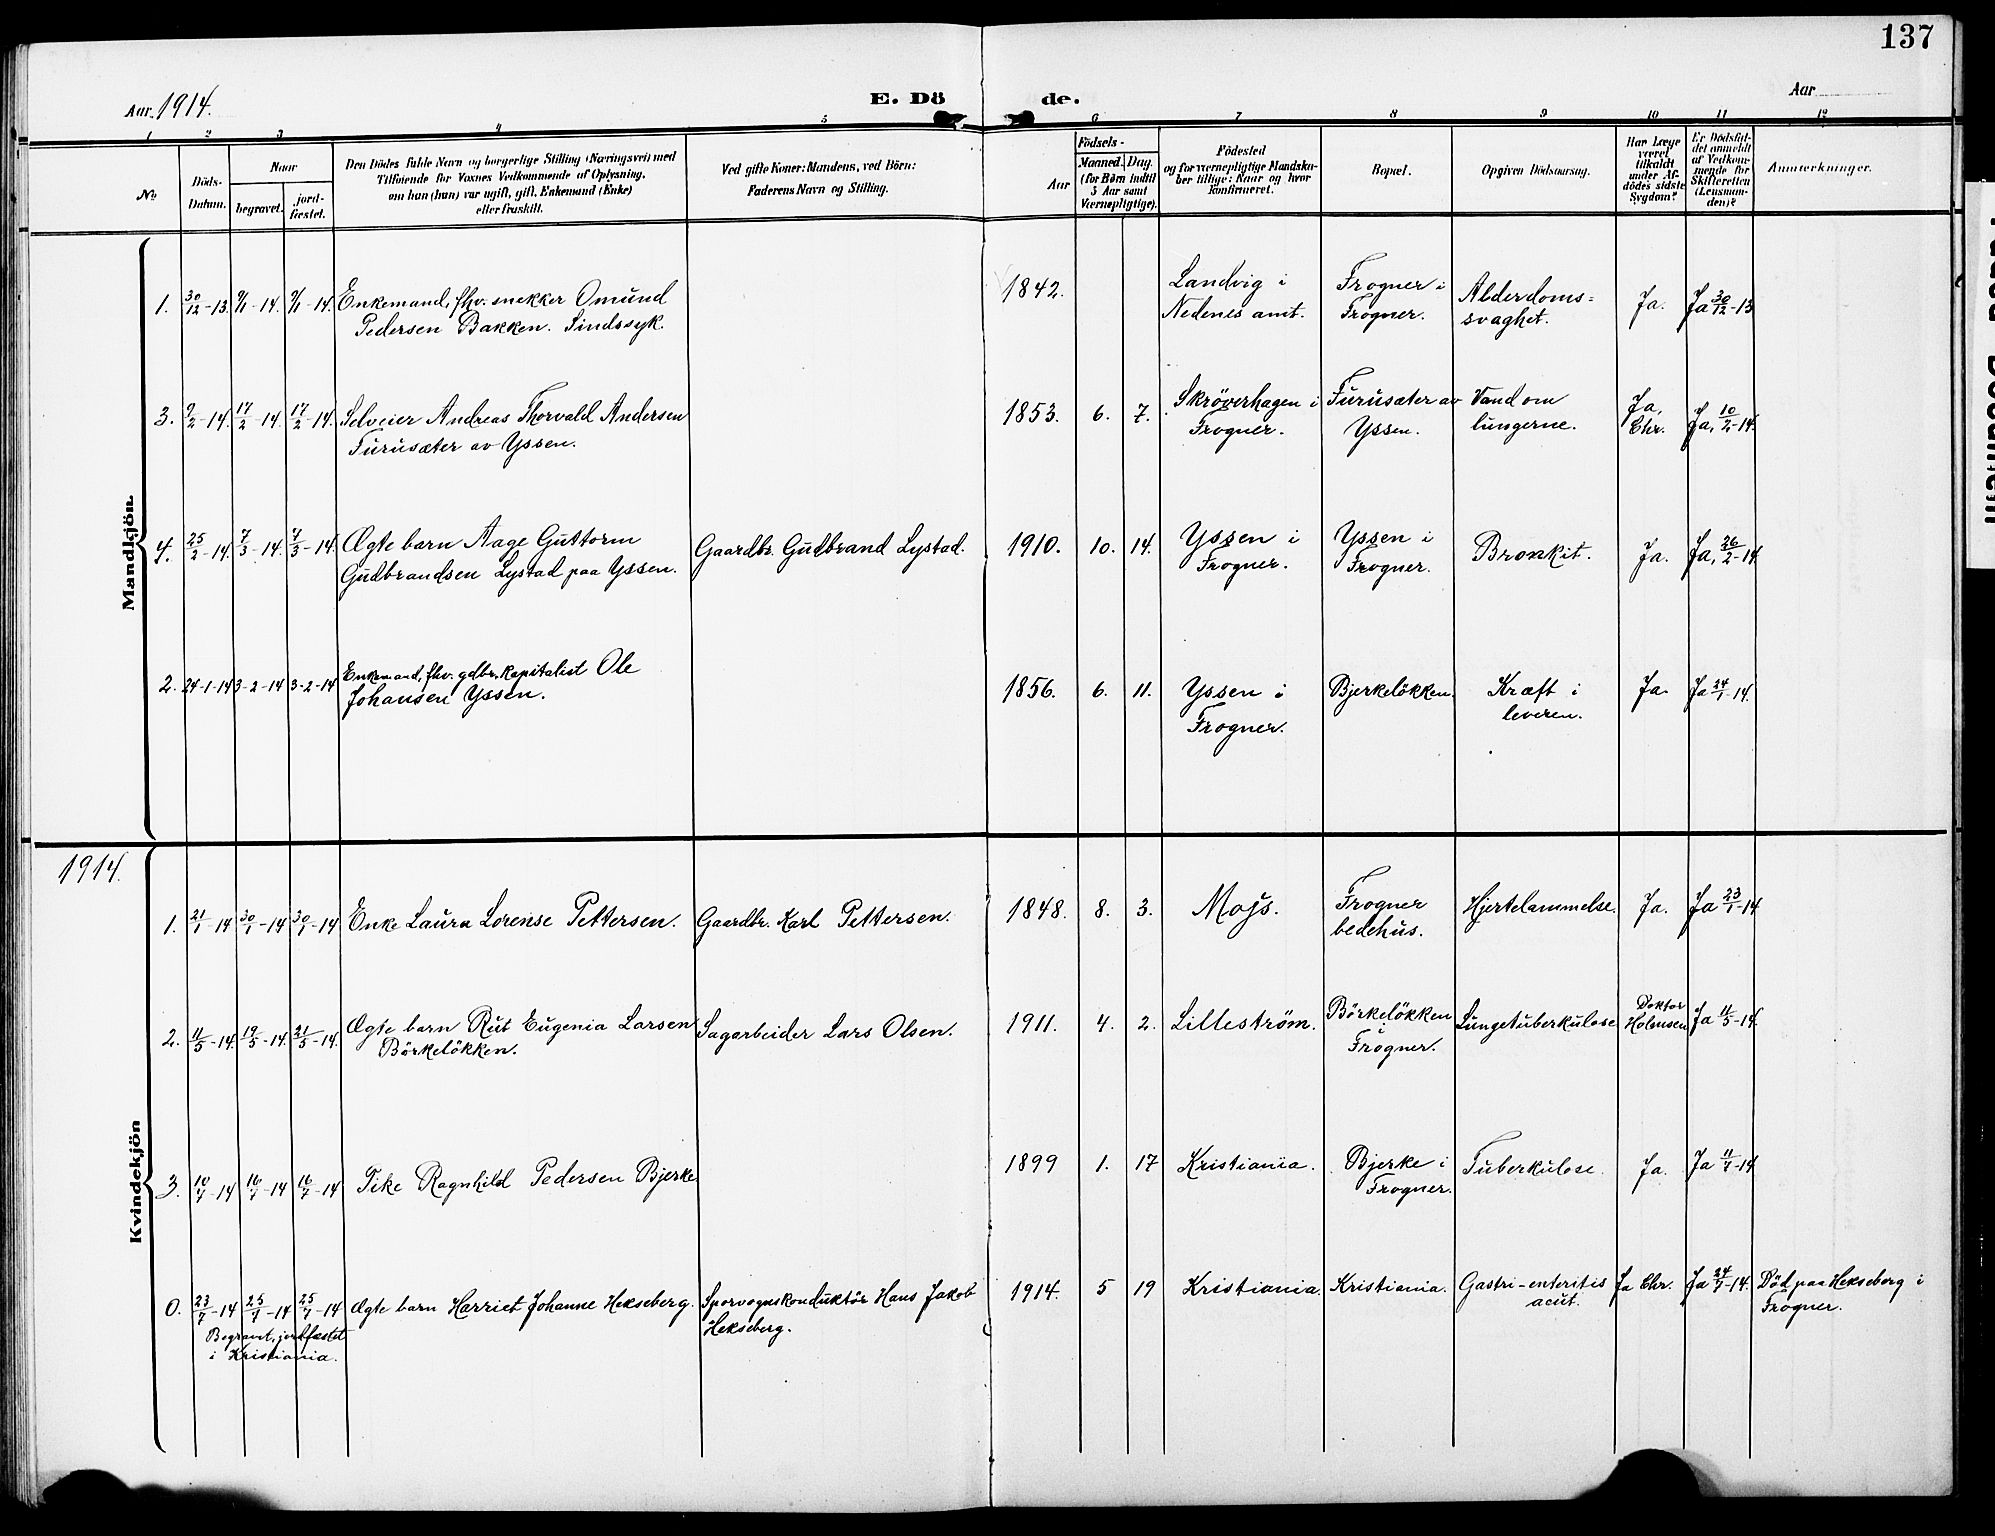 137
Aar 1914.
E. Dö de.
Aar
1 2 3 4 5 6 7 8 9 10 11 12
No
Döds-
Datum.
Naar
begravet.
jord-
fæstet.
Den Dödes fulde Navn og borgerlige Stilling (Næringsvei) med
Tilföiende for Voxnes Vedkommende af Oplysning,
om han (hun) var ugift, gift, Enkemand (Enke)
eller fraskilt.
Ved gifte Koner: Mandens, ved Börn:
Faderens Navn og Stilling.
Aar
Födsels-
Maaned. Dag.
(for Börn indtil
5 Aar samt
Værnepligtige).
Födested
og for værnepligtige Mandska-
ber tillige: Naar og hvor
konfirmeret.
Bopæl.
Opgiven Dödsaarsag.
Har Læge
været
tilkaldt
under Af-
dödes sidste
Sygdom?
Er Dödsfal-
det anmeldt
af Vedkom-
mende for
Skifteretten
(Lensman-
den)?
Anmærkninger.
Mandkjön.
1. 30/12-13. 9/1-14. 9/1-14. Enkemand, fhv. snekker Omund
Pedersen Bakken. Sindssyk.
1842.
Landvig i
Nedenes amt.
Frogner i
Frogner.
Alderdoms=
svaghet.
Ja.
Ja 30/12-13
3. 9/2-14. 17/2-14. 17/2-14. Selveier Andreas Thorvald Andersen
Furusæter av Yssen.
1853. 6. 7.
Skröverhagen i
Frogner.
Furusæter av
Yssen.
Vand om
lungerne.
Ja,
Chr.
Ja, 10/2-14.
4. 25/2-14. 7/3-14. 7/3-14. Ægte barn Aage Guttorm
Gudbrandsen Lystad paa Yssen.
Gaardbr. Gudbrand Lystad.
1910. 10. 14.
Yssen i
Frogner.
Yssen i
Frogner.
Bronkit.
Ja.
Ja, 26/2-14
2. 24-1-14 3-2-14 3-2-14 Enkemand, fhv. gdbr. kapitalist Ole
Johansen Yssen.
1856. 6. 11.
Yssen i
Frogner.
Bjerkelökken.
Kræft i
leveren.
Ja.
Ja 24/1-14.
1914.
Kvindekjön
1. 21/1-14 30/1-14 30/1-14 Enke Laura Lorense Pettersen.
Gaardbr. Karl Pettersen.
1848. 8. 3.
Frogner
bedehus.
Hjertelammelse.
Ja.
Ja 23/1-14
2. 11/5-14. 19/5-14. 21/5-14. Ægte barn Rut Eugenia Larsen
Börkelökken.
Sagarbeider Lars Olsen.
1911. 4. 2.
Lilleström.
Börkelökken
i
Frogner.
Lungetuberkulose
Doktor
Holmsen
Ja 11/5-14.
3. 10/7-14 16/7-14 16/7-14 Pike Ragnhild Pedersen Bjerke
1899 1. 17
Kristiania.
Bjerke i
Frogner.
Tuberkulose.
Ja.
Ja 11/7-14
0. 23/7-14 25/7-14 25/7-14 Ægte barn Harriet Johanne Hekseberg.
Begravet, jordfæstet
i Kristiania.
Sporvognskonduktör Hans Jakob
Hekseberg.
1914. 5 19
Kristiania.
Kristiania.
Gastri-enteritis
acut.
Ja Chr.
Ja 24/7-14.
Död paa Hekseberg i
Frogner.